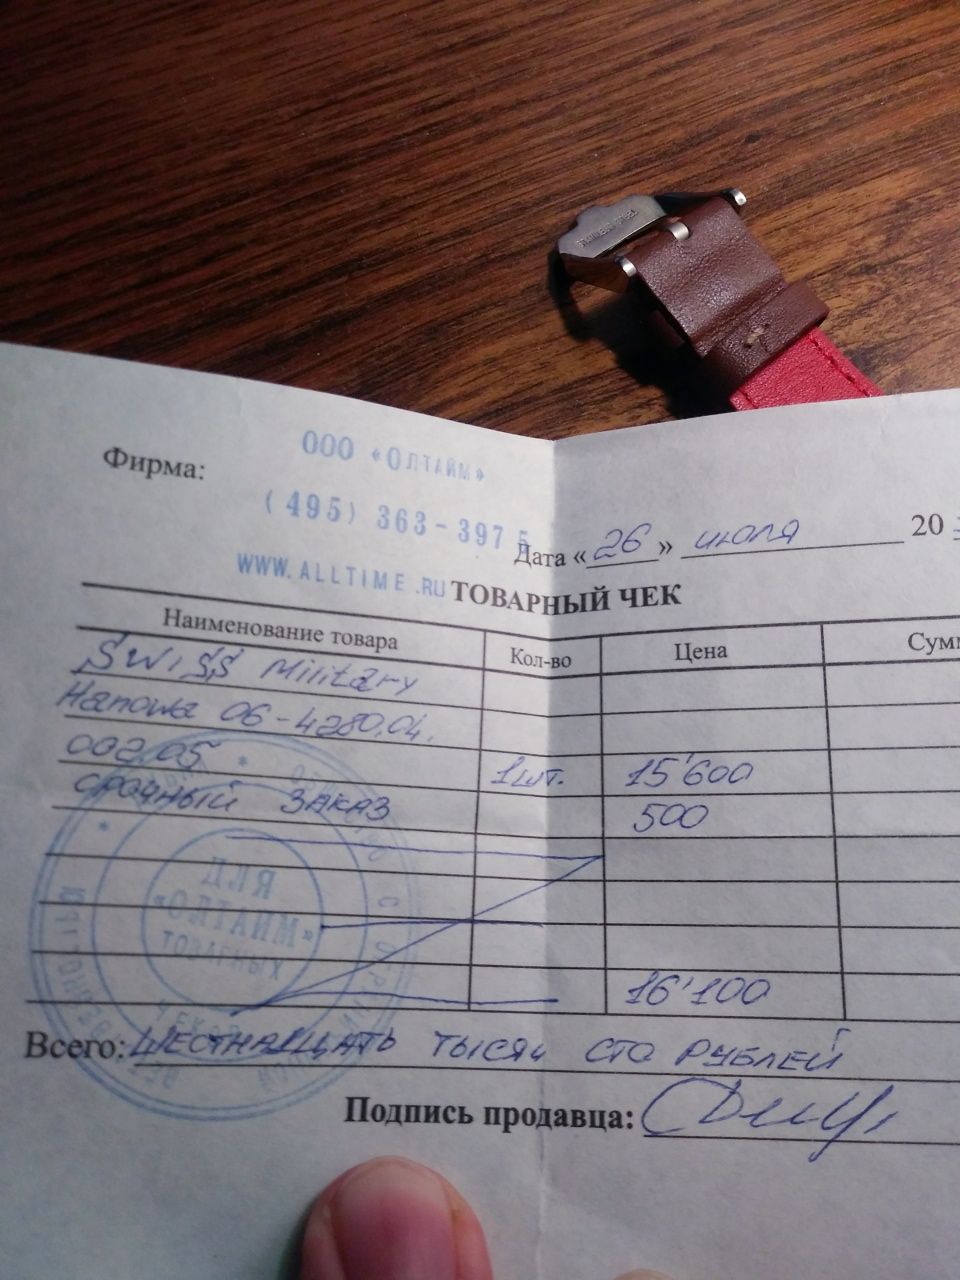 STAINLESS STEEL
ООО «ОЛТАЙМ»
Фирма:
(495) 363-397 5
Дата «26» июля 20
WWW.ALLTIME.RU
ТОВАРНЫЙ ЧЕК
Наименование товара Кол-во Цена Сумм
Swiss Military
Hanowa 06-4280.04.
002.05 1шт. 15'600
срочный заказ 500
ДЛЯ
«ОЛТАЙМ»
ТОВАРНЫХ
ЧЕКОВ
16'100
Всего: шестнадцать тысяч сто рублей
Подпись продавца: